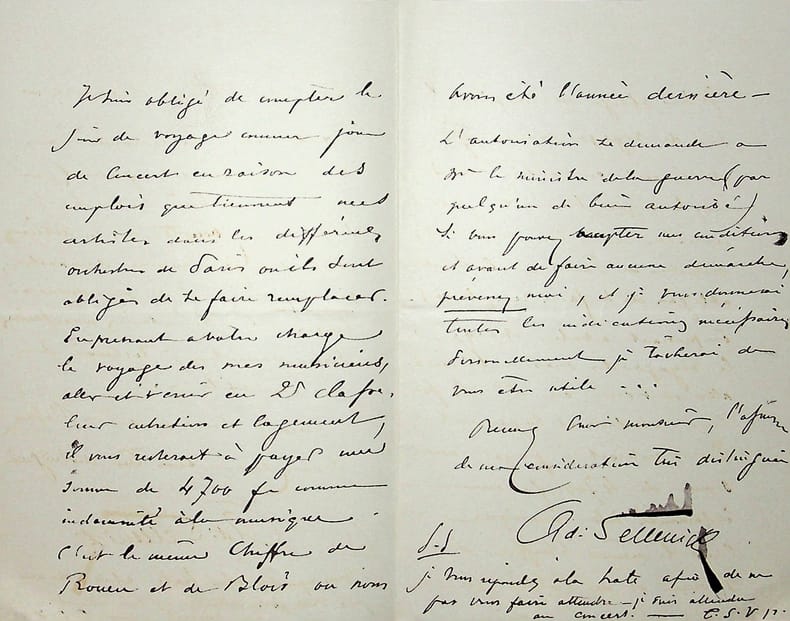 Je suis obligé de compter le
jour de voyage comme jour
de concert en raison des
emplois que tiennent mes
artistes dans les différents
orchestres de Paris où ils sont
obligés de se faire remplacer.
En prenant à votre charge
le voyage de mes musiciens,
aller et venir en 2e classe,
leur entretien et logement,
il vous resterait à payer une
somme de 4700 fr comme
indemnité à la musique
C'est le même chiffre de
Rouen et de Blois où nous
avons été l'année dernière —
L'autorisation se demande a
le ministre de la guerre (par
quelqu'un de bien autorisé)
Si vous pouvez accepter mes conditions
et avant de faire aucune démarche,
prévenez moi, et je vous donnerai
toutes les indications nécessaires
Personnellement je tâcherai de
vous être utile ...
Recevez Monsieur, l'assurance
de ma considération très distinguée
Ad. Sellenick
P.S
je vous réponds à la hate afin de ne
pas vous faire attendre — je suis attendu
au concert. — T.S.V.P.